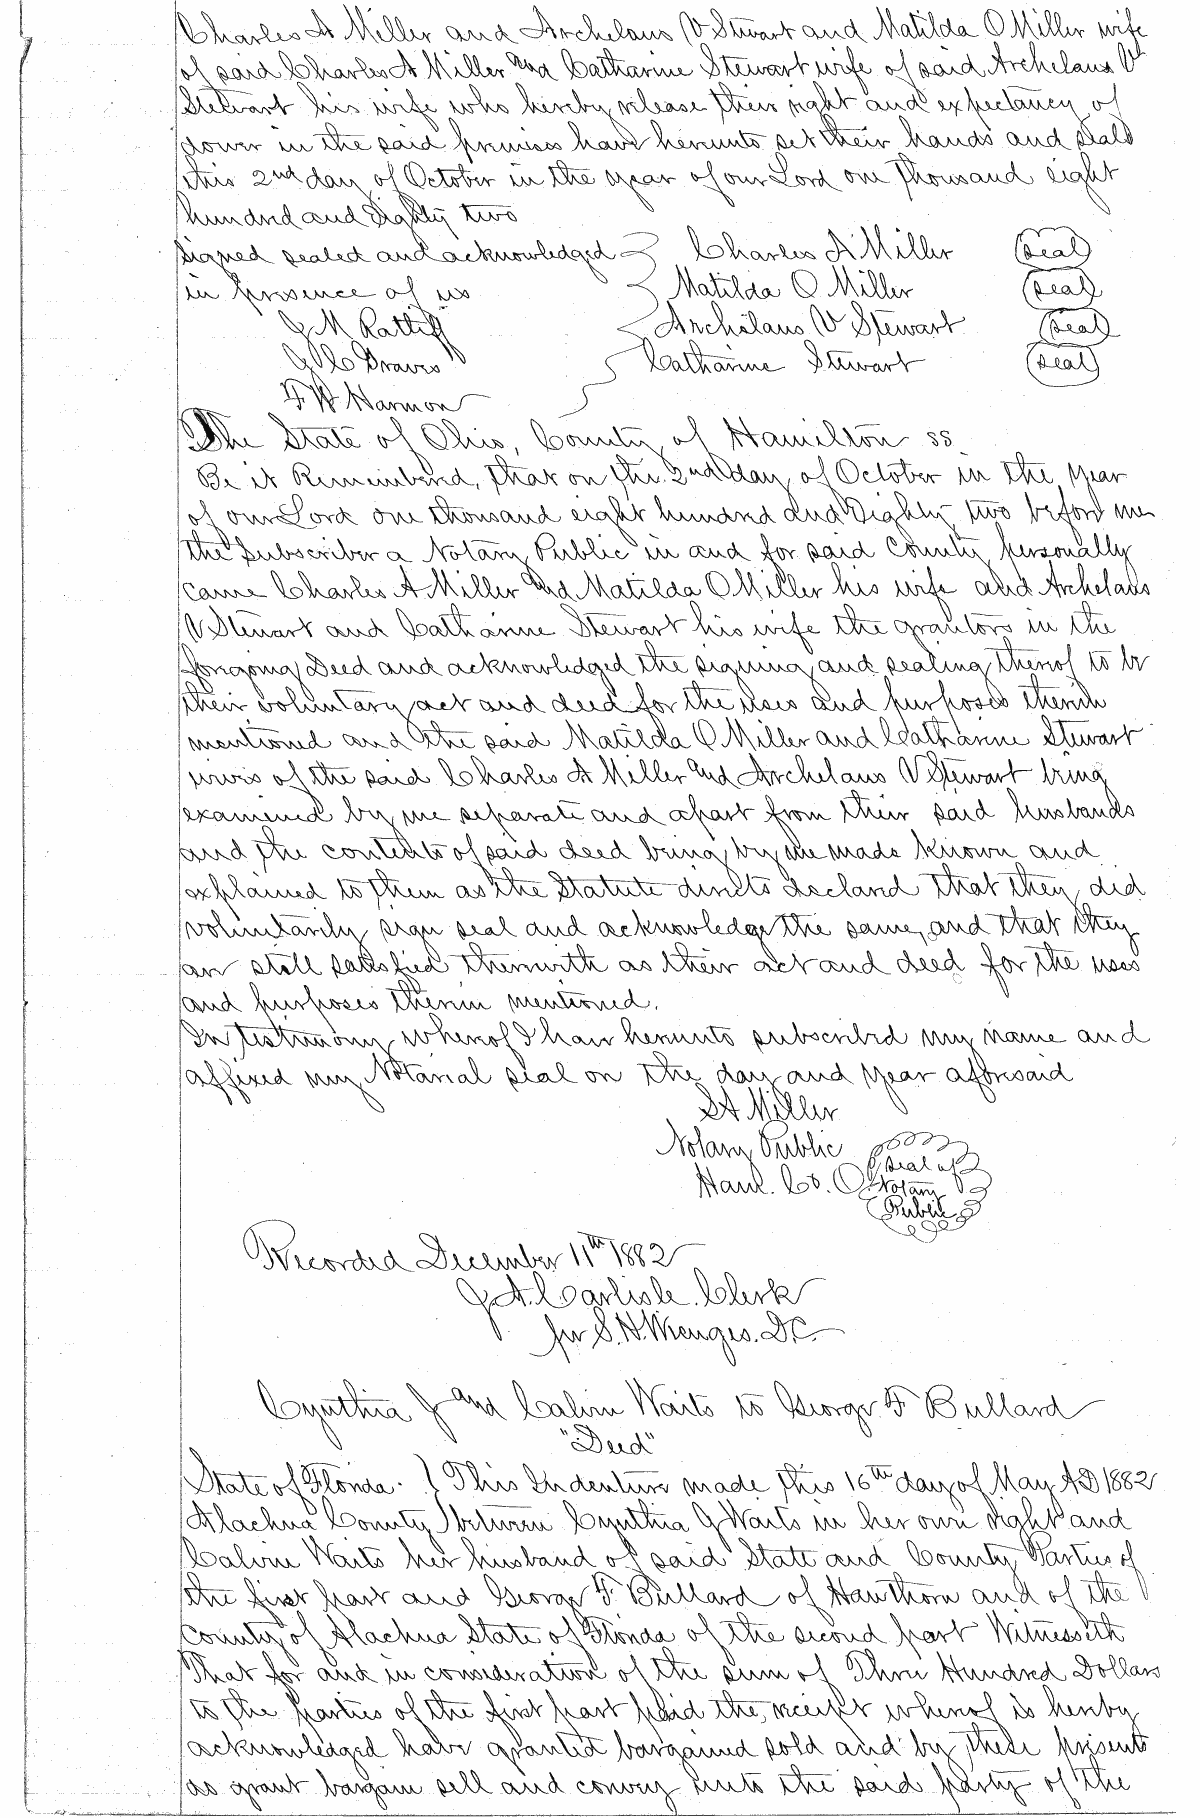 Charles A Miller and Archelaus V Stewart and Matilda O Miller wife
of said Charles A Miller and Catharine Stewart wife of said Archelaus V
Stewart his wife who hereby release their right and expectancy of
dower in the said premises have hereunto set their hands and seals
this 2nd day of October in the year of our Lord one thousand eight
hundred and Eighty two
signed sealed and acknowledged Charles A Miller (seal)
in presence of us Matilda O Miller (seal)
J M Ratliff Archelaus V Stewart (seal)
G C Graves Catharine Stewart (seal)
F W Harmon
The State of Ohio, County of Hamilton ss
Be it Remembered, that on the 2nd day of October in the year
of our Lord one thousand eight hundred and Eighty two before me
the Subscriber a Notary Public in and for said County personally
came Charles A Miller and Matilda O Miller his wife and Archelaus
V Stewart and Catharine Stewart his wife the grantors in the
foregoing Deed and acknowledged the signing and sealing thereof to be
their voluntary act and deed for the uses and purposes therein
mentioned and the said Matilda O Miller and Catharine Stewart
wives of the said Charles A Miller and Archelaus V Stewart being
examined by me separate and apart from their said husbands
and the contents of said deed being by me made known and
explained to them as the Statute directs declared that they did
voluntarily sign seal and acknowledge the same, and that they
are still satisfied therewith as their act and deed for the uses
and purposes therein mentioned.
In testimony whereof I have hereunto subscribed my name and
affixed my Notarial seal on the day and year aforesaid
S A Miller
Notary Public
Ham. Co. O
Seal of
Notary
Public
Recorded December 11th 1882
J. A. Carlisle. Clerk
per S. H. Wienges. D.C.
Cynthia J and Calvin Waits to George F Bullard
"Deed"
State of Florida. } This Indenture made this 16th day of May AD 1882
Alachua County } between Cynthia J Waits in her own right and
Calvin Waits her husband of said State and County Parties of
the first part and George F. Bullard of Hawthorn and of the
County of Alachua State of Florida of the second part Witnesseth
That for and in consideration of the sum of Three Hundred Dollars
to the parties of the first part paid the receipt whereof is hereby
acknowledged have granted bargained sold and by these presents
as grant bargain sell and convey unto the said party of the